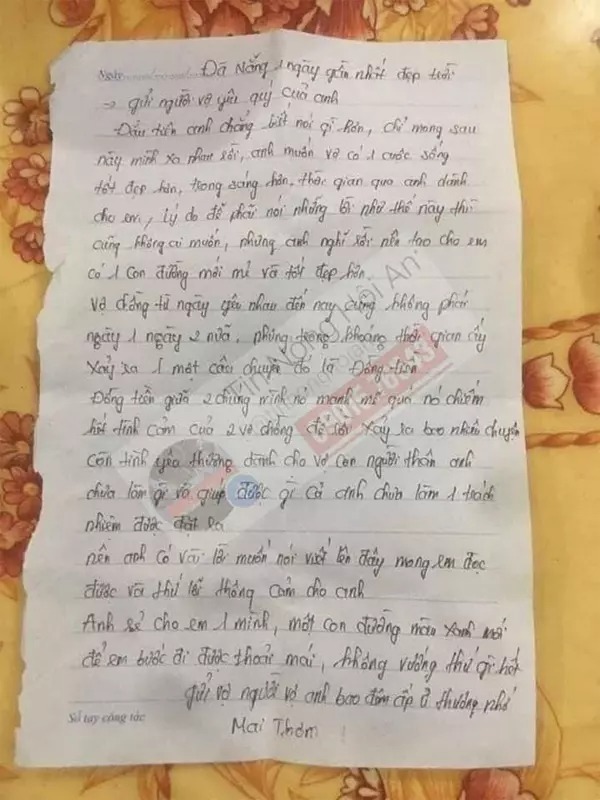 Ngày
Đã Nẵng 1 ngày gần nhất đẹp trời
→ gửi người vợ yêu quý của anh
Đầu tiên anh chẳng biết nói gì hơn, chỉ mong sau
này mình xa nhau rồi, anh muốn vợ có 1 cuộc sống
tốt đẹp hơn, trong sáng hơn, thời gian qua anh dành
cho em, lý do để phải nói những lời như thế này thì
cũng không ai muốn, nhưng anh nghĩ rồi nên tạo cho em
có 1 con đường mới mẻ và tốt đẹp hơn
Vợ chồng từ ngày yêu nhau đến nay cũng không phải
ngày 1 ngày 2 nữa, nhưng trong khoảng thời gian ấy
xảy ra 1 một câu chuyện đó là Đồng tiền
Đồng tiền giữa 2 chúng mình nó mạnh mẽ quá nó chiếm
hết tình cảm của 2 vợ chồng để rồi xảy ra bao nhiêu chuyện
Còn tình yêu thương dành cho vợ con người thân anh
chưa làm gì và giúp được gì cả anh chưa làm 1 trách
nhiệm được đặt ra
nên anh có vài lời muốn nói viết lên đây mong em đọc
được và thứ lỗi thông cảm cho anh
Anh sẽ cho em 1 mình, một con đường màu xanh mới
để em bước đi được thoải mái, không vướng thứ gì hết
gửi vợ người vợ anh bao đêm ấp ủ thương nhớ
Mai Thơm
Sổ tay công tác
Tin Nóng Hội An